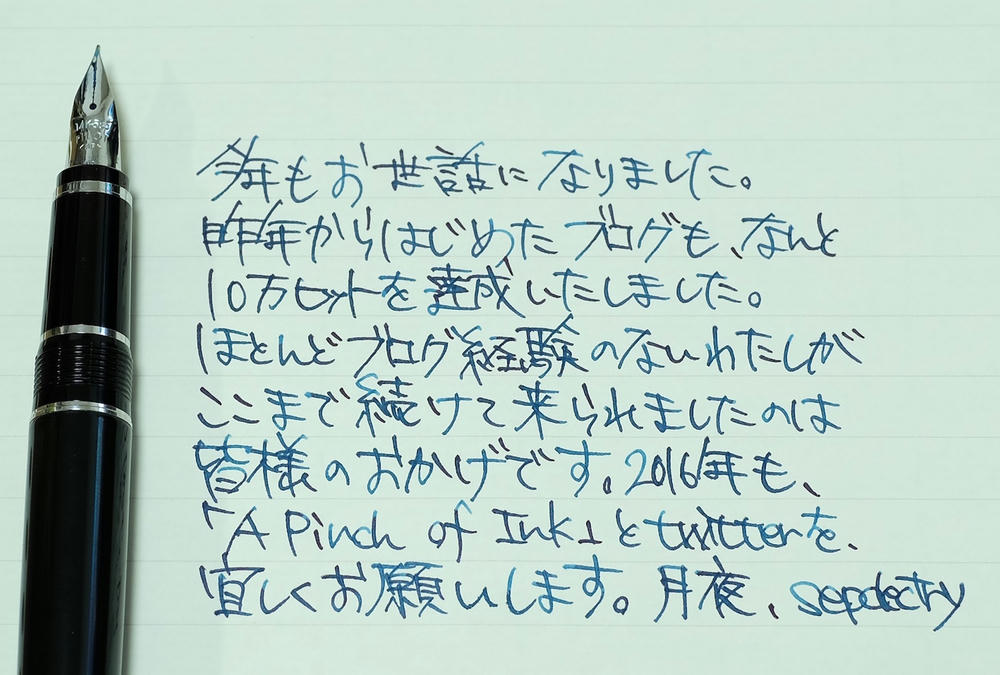 今年もお世話になりました。
昨年からはじめたブログも、なんと
10万ヒットを達成いたしました。
ほとんどブログ経験のないわたしが
ここまで続けて来られましたのは
皆様のおかげです。2016年も、
「A Pinch of Ink」とtwitterを、
宜しくお願いします。月夜、sepdectry